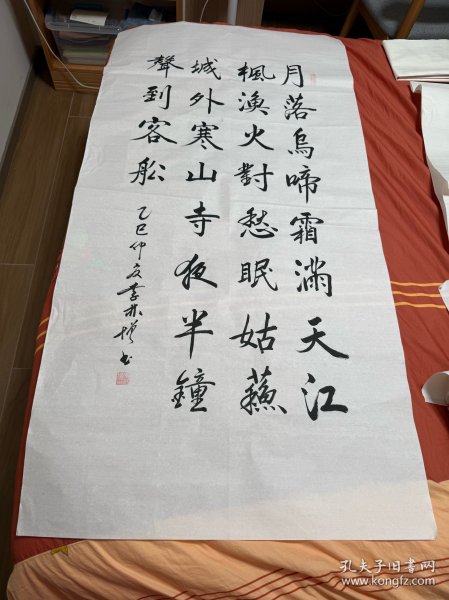 月落烏啼霜滿天江
楓漁火對愁眠姑蘇
城外寒山寺夜半鐘
聲到客船
乙巳仲夏李林增书
孔夫子旧书网
www.kongfz.com